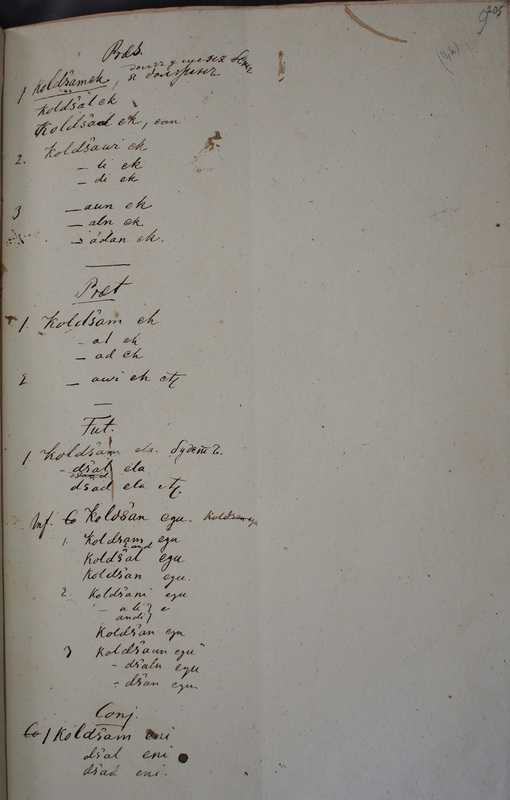 205
Præs.
1 Koldšamek,
Koldšal ek
Koldšad ek, ean
2. Koldšawi ek
— li ek
— di ek
3 — aun ek
— aln ek
— adan ek.
Præt
1. Koldšam eh
- al eh
- ad eh
2 — awi eh etz
Fut.
1 Koldšam ela. будетъ.
- dšal ela
dšad ela etz.
Inf. Koldšan egu.
1. Koldšam egu
Koldšal egu
Koldšan egu.
2. Koldšani egu
- ali} e
andi}
Koldšan egu
3 Koldšaun egu
- dšaln egu
- dšan egu
Conj.
1 Koldšam eni
dšal eni
dšad eni.